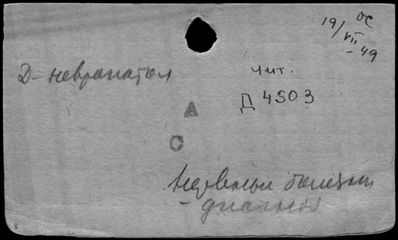 19/VII-49
ОС
Д-невропатол
чит.
Д 4503
Нервные болезни
- диагноз